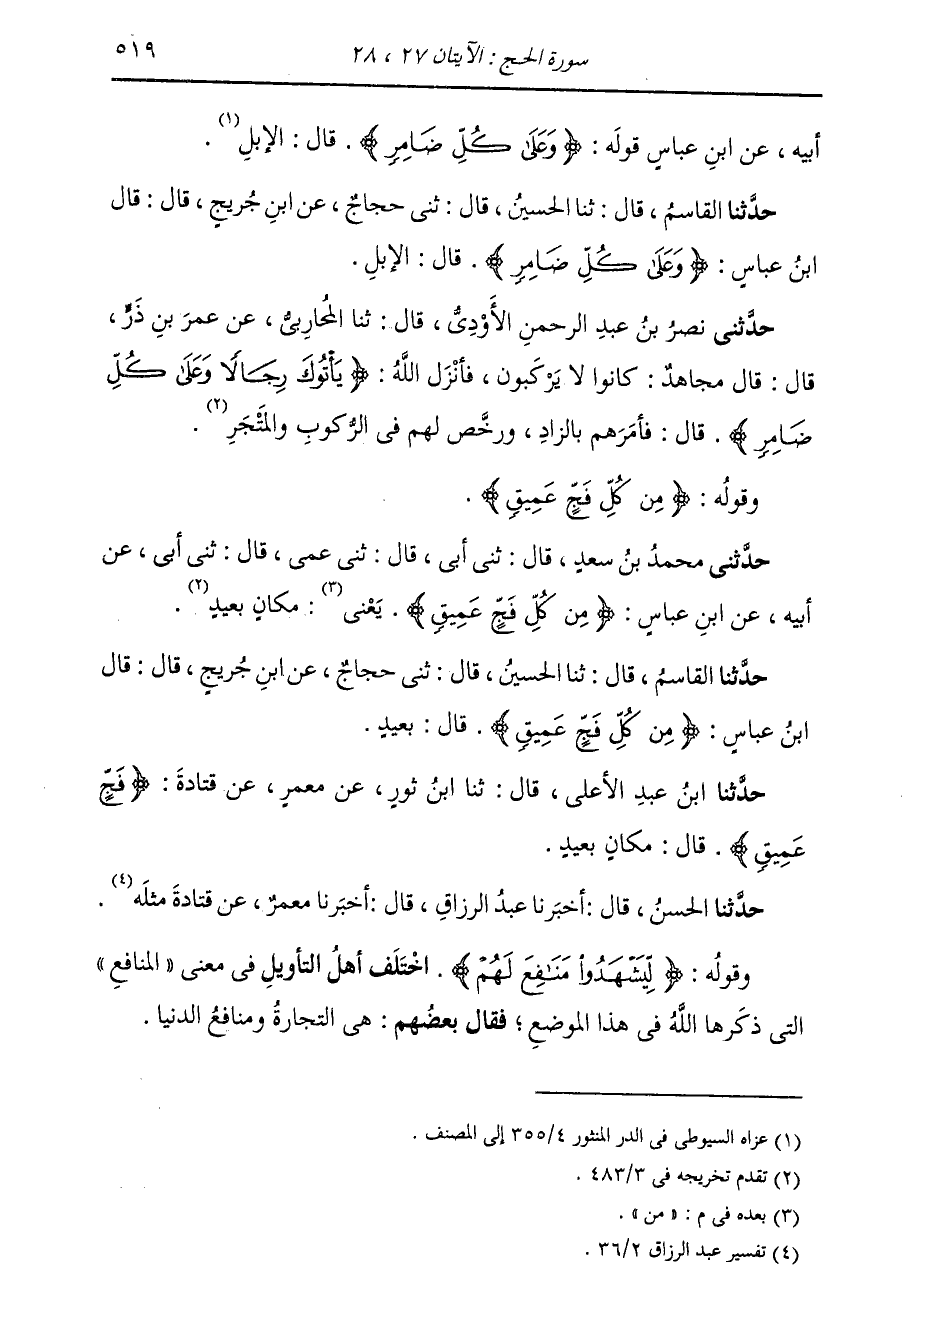 سورة الحج : الآيتان ٢٧ ، ٢٨ ٥١٩
أبيه ، عن ابنِ عباسٍ قولَه : ﴿ وَعَلَىٰ كُلِّ ضَامِرٍ ﴾ . قال : الإبلِ(١) .
حدَّثنا القاسمُ ، قال : ثنا الحسينُ ، قال : ثنى حجاجٌ ، عن ابنِ جُريجٍ ، قال : قال
ابنُ عباسٍ : ﴿ وَعَلَىٰ كُلِّ ضَامِرٍ ﴾ . قال : الإبلِ .
حدَّثنى نصرُ بنُ عبدِ الرحمنِ الأَوْدِىُّ ، قال : ثنا المُحاربىُّ ، عن عمرَ بنِ ذَرٍّ ،
قال : قال مجاهدٌ : كانوا لا يَرْكبون ، فأنْزَل اللَّهُ : ﴿ يَأْتُوكَ رِجَالًا وَعَلَىٰ كُلِّ
ضَامِرٍ ﴾ . قال : فأمَرَهم بالزادِ ، ورخَّص لهم فى الرُّكوبِ والمَتْجَرِ(٢) .
وقولُه : ﴿ مِن كُلِّ فَجٍّ عَمِيقٍ ﴾ .
حدَّثنى محمدُ بنُ سعدٍ ، قال : ثنى أبى ، قال : ثنى عمى ، قال : ثنى أبى ، عن
أبيه ، عن ابنِ عباسٍ : ﴿ مِن كُلِّ فَجٍّ عَمِيقٍ ﴾ . يَعْنى(٣) : مكانٍ بعيدٍ(٢) .
حدَّثنا القاسمُ ، قال : ثنا الحسينُ ، قال : ثنى حجاجٌ ، عن ابنِ جُريجٍ ، قال : قال
ابنُ عباسٍ : ﴿ مِن كُلِّ فَجٍّ عَمِيقٍ ﴾ . قال : بعيدٍ .
حدَّثنا ابنُ عبدِ الأعلى ، قال : ثنا ابنُ ثورٍ ، عن معمرٍ ، عن قتادةَ : ﴿ فَجٍّ
عَمِيقٍ ﴾ . قال : مكانٍ بعيدٍ .
حدَّثنا الحسنُ ، قال :أخبَرنا عبدُ الرزاقِ ، قال :أخبَرنا معمرٌ ، عن قتادةَ مثلَه(٤) .
وقولُه : ﴿ لِّيَشْهَدُواْ مَنَٰفِعَ لَهُمْ ﴾ . اخْتَلَف أهلُ التأويلِ فى معنى « المنافعِ »
التى ذكَرها اللَّهُ فى هذا الموضعِ ؛ فقال بعضُهم : هى التجارةُ ومنافعُ الدنيا .
(١) عزاه السيوطى فى الدر المنثور ٣٥٥/٤ إلى المصنف .
(٢) تقدم تخريجه فى ٤٨٣/٣ .
(٣) بعده فى م : « من » .
(٤) تفسير عبد الرزاق ٣٦/٢ .